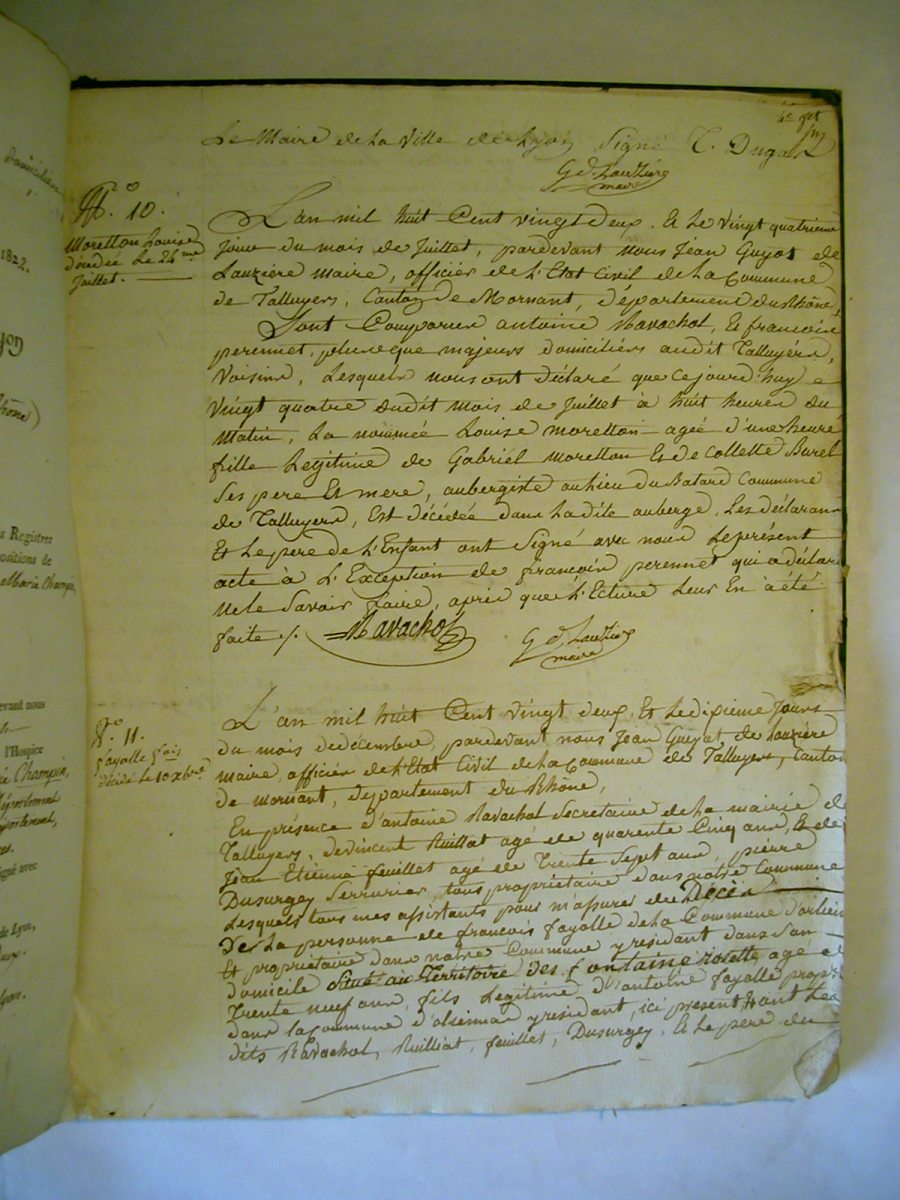 domicilié
1822.
yon
hône)
s Registres
ositions de
Marie Champin,
evant nous
l'Hospice
ie Champin,
département
département,
es.
igné avec
de Lyon,
Lyon.
4e
Le Maire de La Ville de Lyon Signé C. Dugas
G d. Lauzière
maire
N.° 10.
Moretton Louise
décédée Le 24 me
Juillet.
L'an mil huit Cent vingt deux. Et Le vingt quatrieme
Jour du mois de Juillet, pardevant nous Jean Guyot de
Lauzière maire, officier de L'Etat Civil de La Commune
de Talluyers, Canton de Mornant, département du Rhône,
Sont Comparus antoine Ravachol, Et francois
perennet, plus que majeurs domiciliés audit Talluyers,
Voisins, Lesquels nous ont déclaré que ce jourd'huy
Vingt quatre dudit mois de Juillet à huit heures du
Matin, La nommée Louise moretton agée d'une heure
fille Legitime de Gabriel moretton Et de Collette Burel
Ses pere Et mere, aubergiste au Lieu du Batard Commune
de Talluyers, Est décédée dans La dite auberge, Les déclaran
Et Le pere de L'Enfant ont Signé avec nous Le présent
acte à L'Exception de francois perennet qui a déclaré
ne le Savoir faire, après que L'Ecture Leur En a été
faite /. Ravachol G d. Lauzière
maire
N.° 11.
fayolle fois
décédé le 10 xbre
L'an mil huit Cent Vingt deux, Et Le dixieme Jours
du mois de décembre, pardevant nous Jean Guyot de Lauzière
maire, officier de L'Etat Civil de La Commune de Talluyers, Canton
de mornant, département du Rhône,
En présence d'antoine Ravachol Secretaire de La mairie de
Talluyers, de Vincent Ruillat agé de quarente Cinq ans, Et de
Jean Etienne feuillet agé de Trente Sept ans, pierre
Dusurgey Serrurier, tous propriétaire dans notre Commune
Lesquels tous mes assistants pour m'assurer du Décès
De La personne de francois fayolle de La Commune d'orlien
Et propriétaire dans notre Commune y résidant dans Son
domicile Situé au Territoire des fontaine rosette, agé de
Trente neuf ans, fils Legitime d'antoine fayolle propri
dans La Commune d'orlienas y résidant, ici présent Les
dits Ravachol, Ruilliat, feuillet, Dusurgey, Et Le pere du